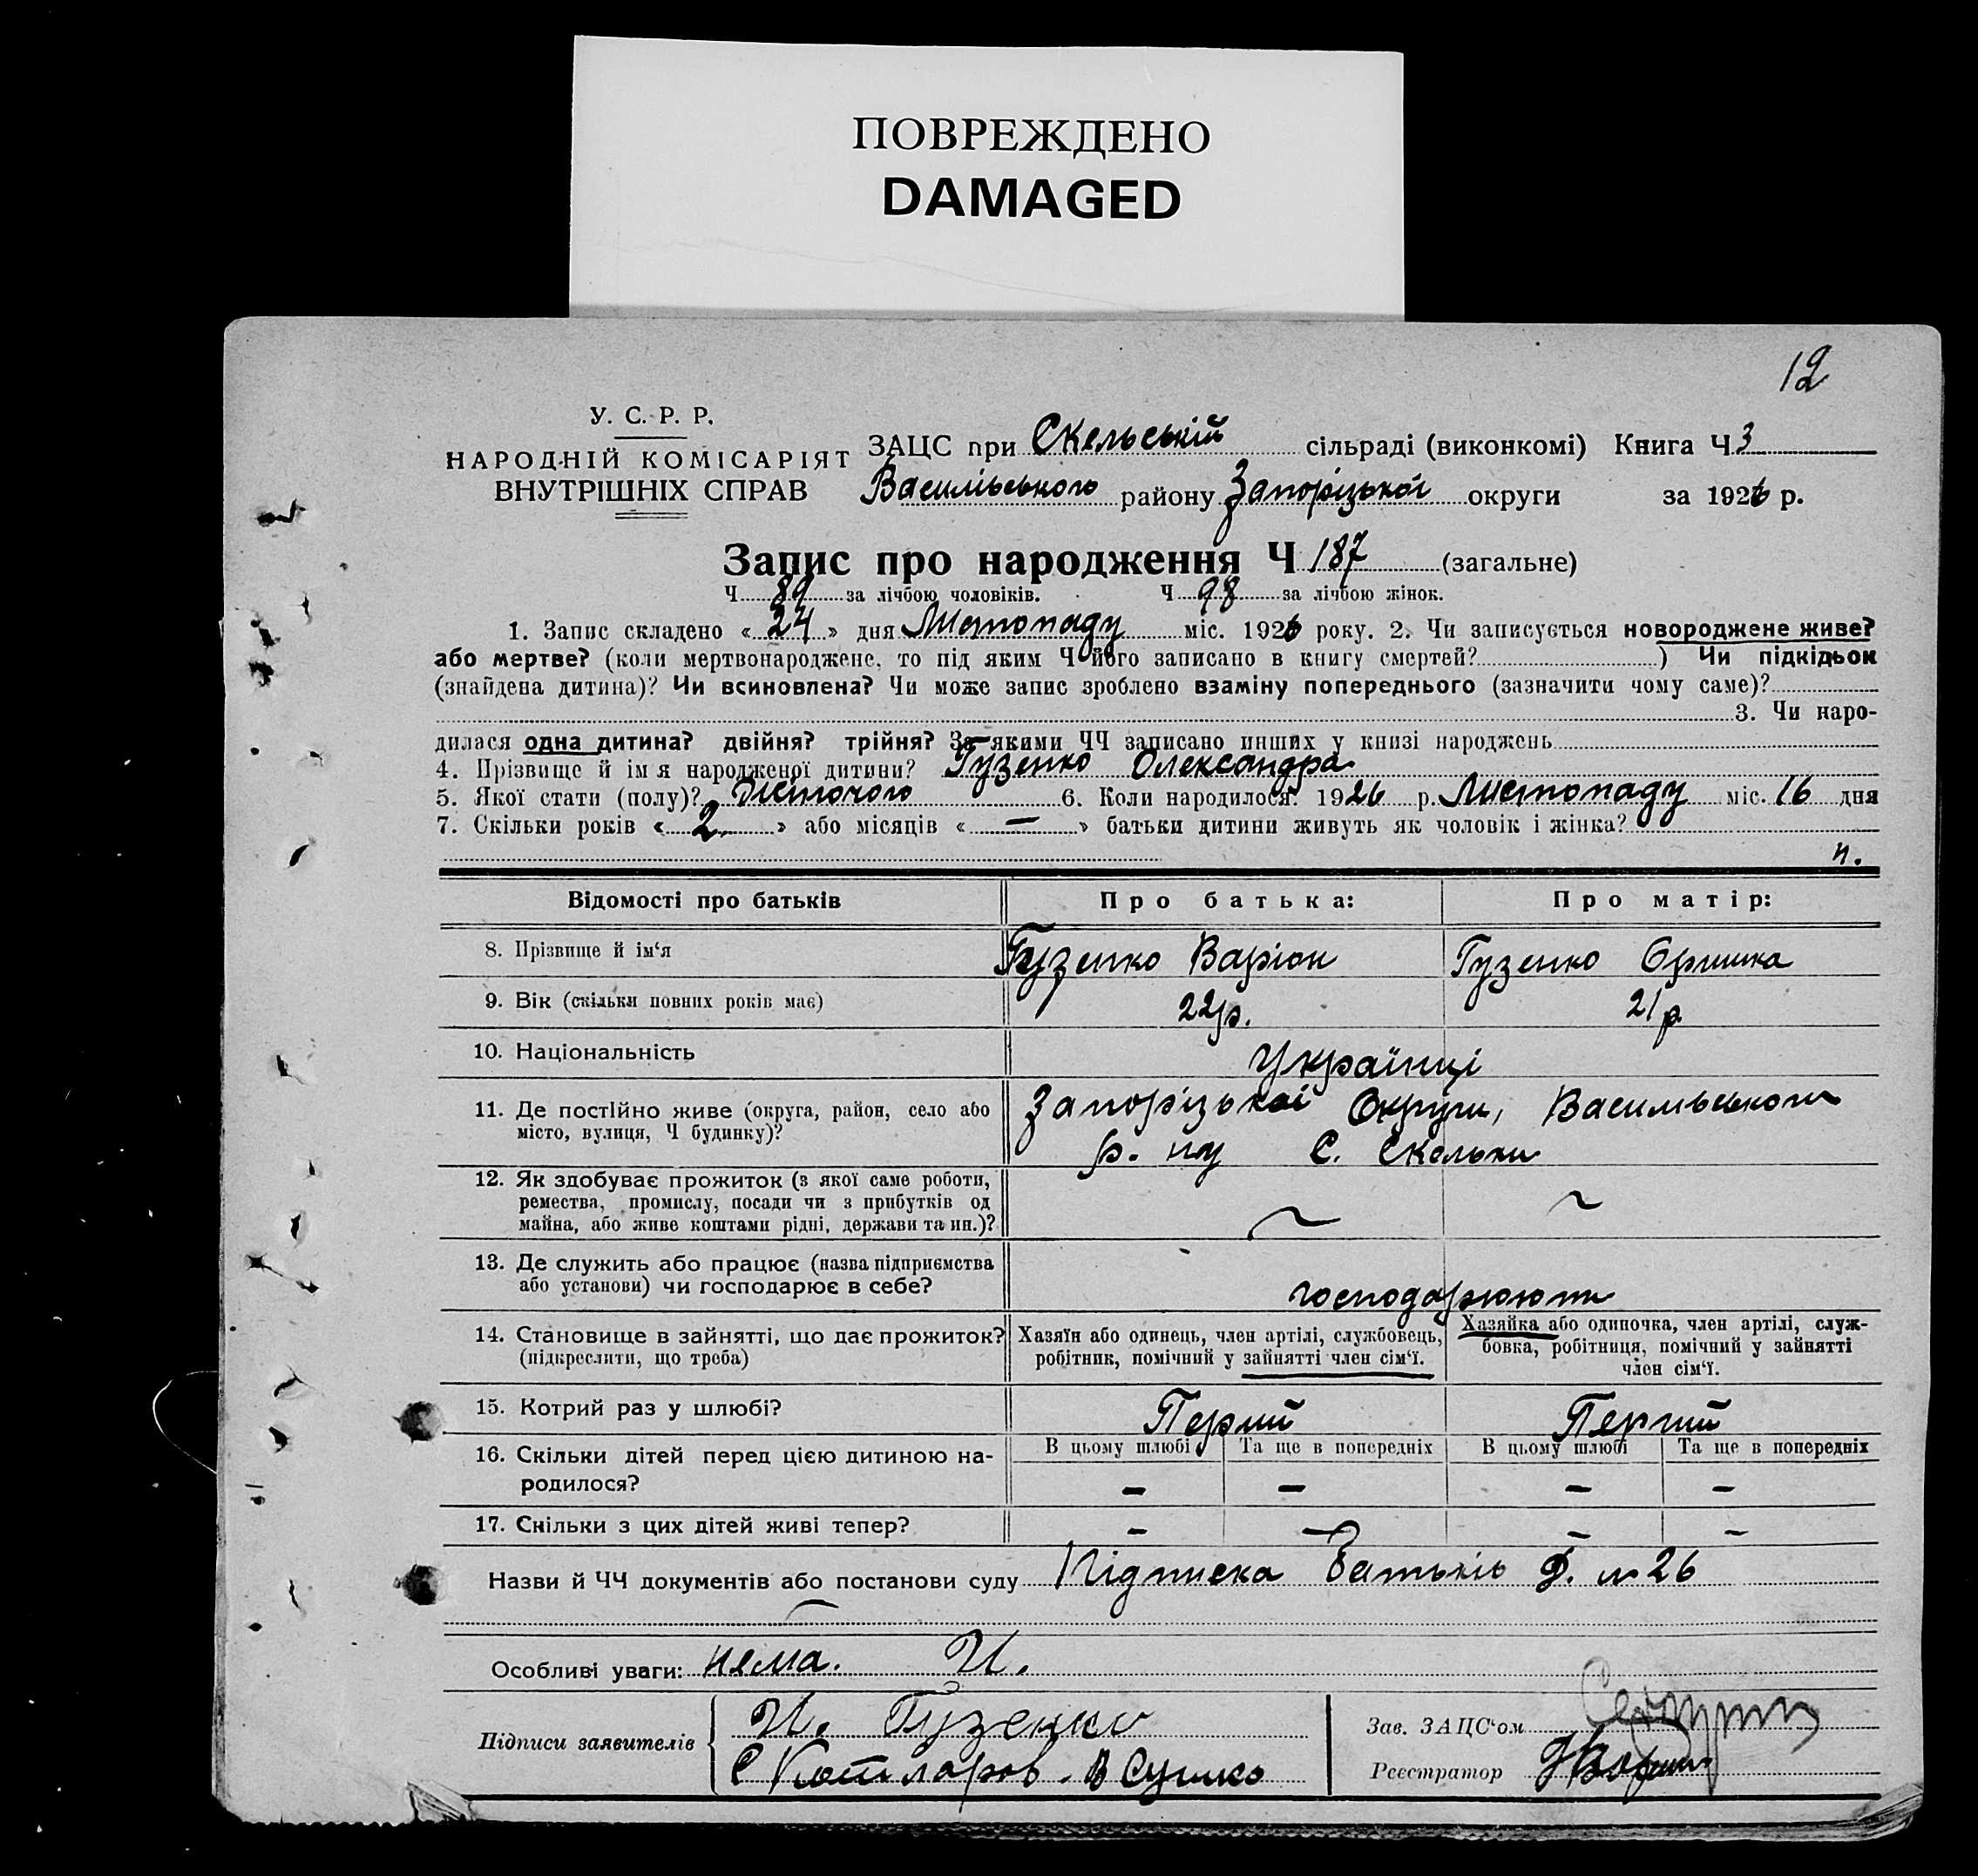 ПОВРЕЖДЕНО
DAMAGED
12
У. С. Р. Р.
НАРОДНІЙ КОМІСАРІЯТ
ВНУТРІШНІХ СПРАВ
ЗАЦС при Скельській сільраді (виконкомі) Книга Ч 3
Васильського району Запорізької округи за 1926 р.
Запис про народження Ч 187 (загальне)
Ч 89 за лічбою чоловіків. Ч 98 за лічбою жінок.
1. Запис складено « 24 » дня Листопаду міс. 1926 року. 2. Чи записується новороджене живе?
або мертве? (коли мертвонароджене, то під яким Ч його записано в книгу смертей? ) Чи підкідьок
(знайдена дитина)? Чи всиновлена? Чи може запис зроблено взаміну попереднього (зазначити чому саме)?
3. Чи наро-
дилася одна дитина? двійня? трійня? За якими ЧЧ записано инших у книзі народжень
4. Прізвище й ім я народженої дитини? Гузенко Олександра
5. Якої стати (полу)? Жіночого 6. Коли народилося? 1926 р. Листопаду міс. 16 дня
7. Скільки років « 2 » або місяців « — » батьки дитини живуть як чоловік і жінка?
Відомості про батьків Про батька: Про матір:
8. Прізвище й ім‘я Гузенко Варіон Гузенко Оришка
9. Вік (скільки повних років має) 22 р. 21 р.
10. Національність Українці
11. Де постійно живе (округа, район, село або
місто, вулиця, Ч будинку)?
Запорізької Округи, Васильського
р. ну С. Скельки
12. Як здобуває прожиток (з якої саме роботи,
ремества, промислу, посади чи з прибутків од
майна, або живе коштами рідні, держави та ин.)?
13. Де служить або працює (назва підприємства
або установи) чи господарює в себе?
господарюють
14. Становище в зайнятті, що дає прожиток?
(підкреслити, що треба)
Хазяїн або одинець, член артілі, службовець,
робітник, помічний у зайнятті член сім‘ї.
Хазяйка або одиночка, член артілі, служ-
бовка, робітниця, помічний у зайнятті
член сім‘ї.
15. Котрий раз у шлюбі? Перший Перший
16. Скільки дітей перед цією дитиною на-
родилося?
В цьому шлюбі Та ще в попередніх В цьому шлюбі Та ще в попередніх
— — — —
17. Скільки з цих дітей живі тепер? — — — —
Назви й ЧЧ документів або постанови суду Підписка батьків Д. № 26
Особливі уваги: нема. И.
Підписи заявителів И. Гузенко
С Котляров. В Сушко
Зав. ЗАЦС‘ом
Реєстратор